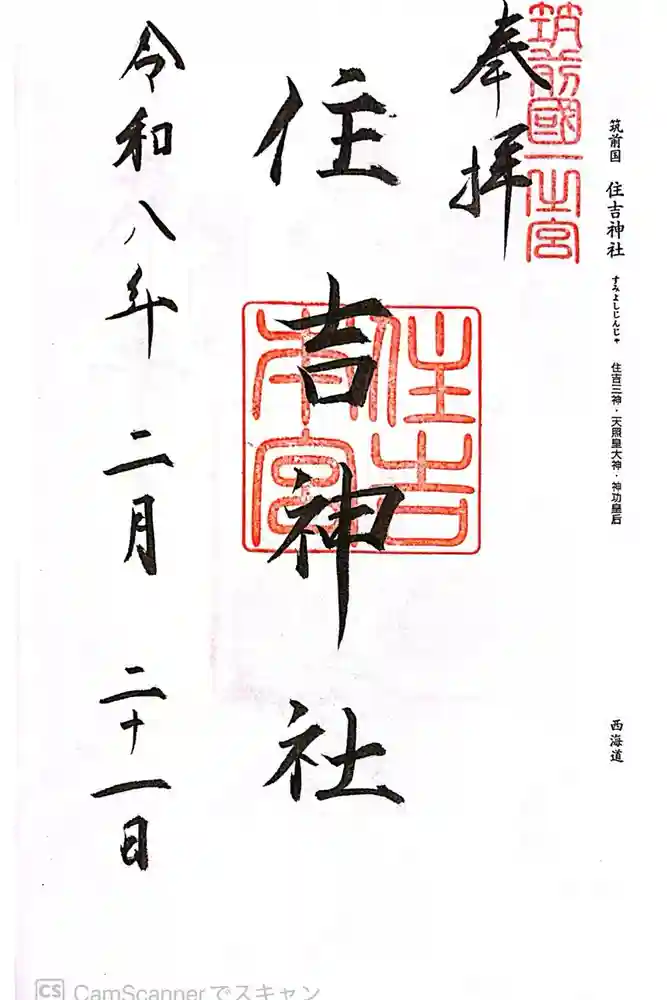 筑前国 住吉神社 すみよしじんじゃ 住吉三神・天照皇大神・神功皇后 西海道
筑前國一之宮
奉拝
住吉神社
住吉
本宮
令和八年 二月 二十一日
CS CamScannerでスキャン